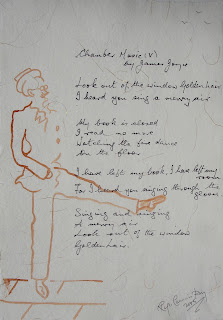 Chamber Music (V)
by James Joyce
Look out of the window Goldenhair
I heard you sing a merry air
My book is closed
I read no more
Watching the fire dance
On the floor
I have left my book. I have left my
room
For I heard you singing through the
gloom
Singing and singing
A merry air
Look out of the window
Goldenhair.